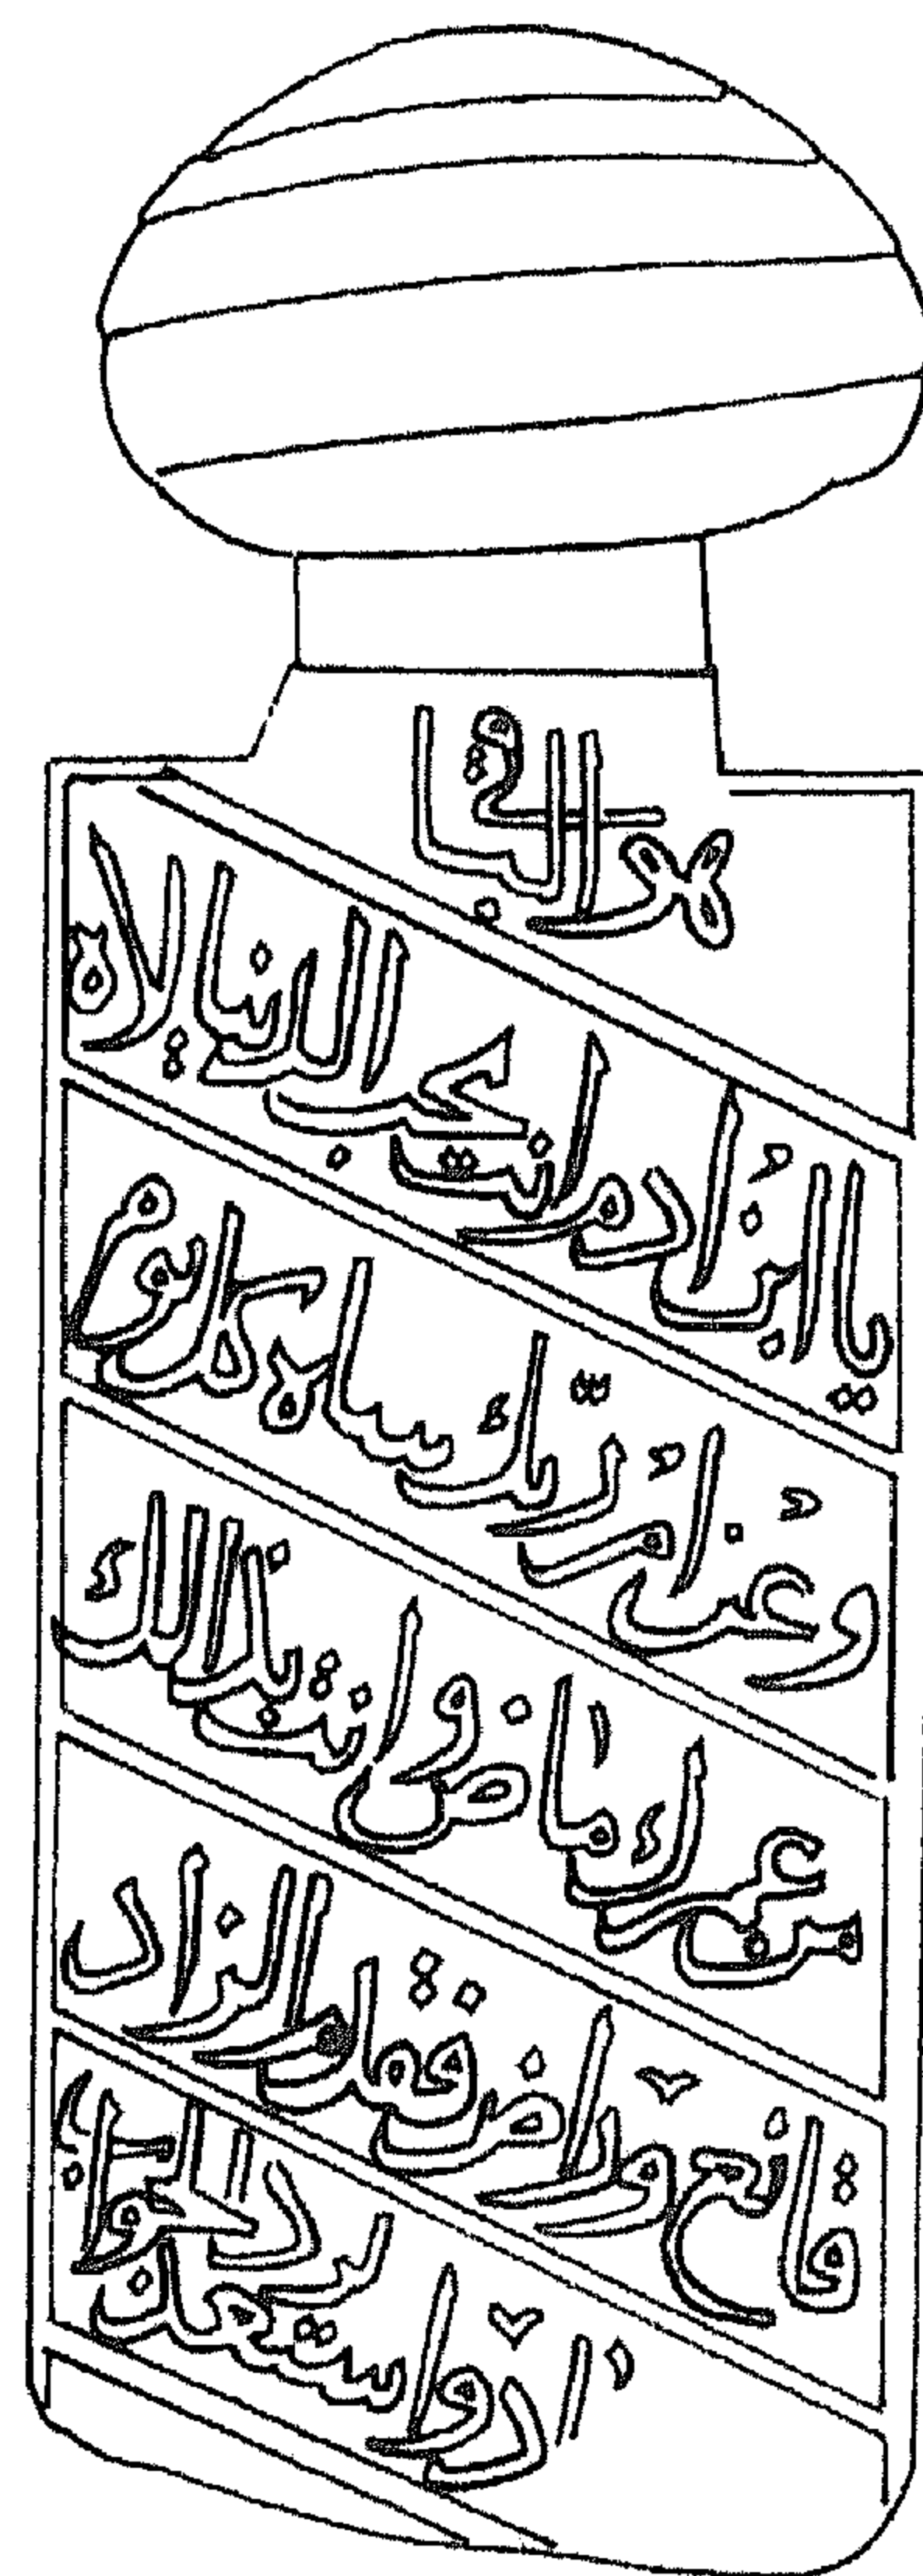 هو الباقى
يا ابن ادم انت بحب الدنيا لاه
وعن امر ربك ساه كل يوم
من عمرك ماض وانت بذالك
قانع وراض فقدم والزاد
واستعدن لرد الجواب